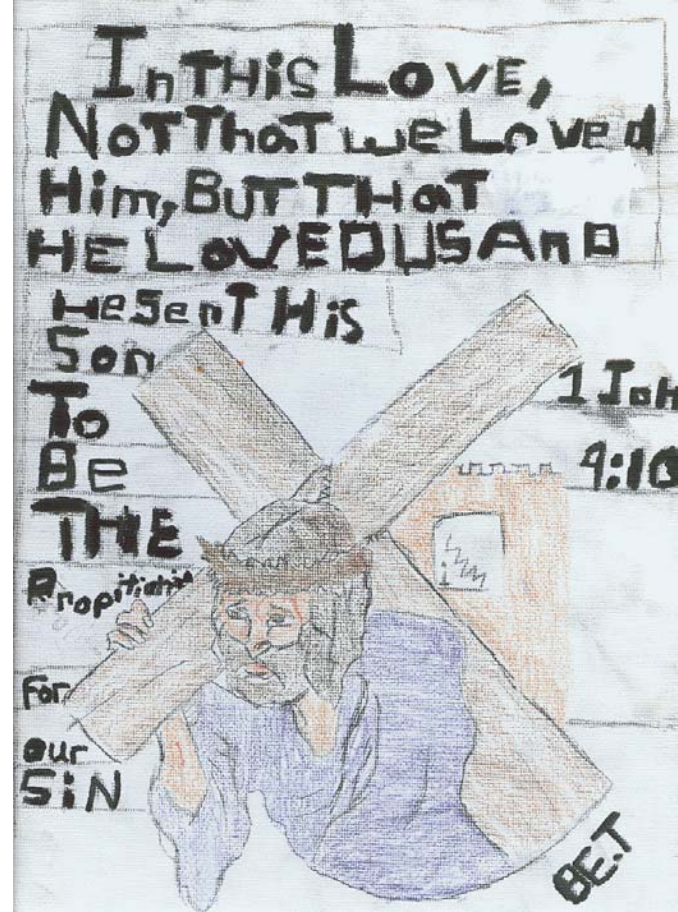 InTHiS LOVE,
NoTThaT we Loved
Him, BUTTHaT
HE LOVED US AnD
HeSenT His
Son
To
Be
THE
Propitiatio
For
our
SiN
1 Joh
4:10
BE.T